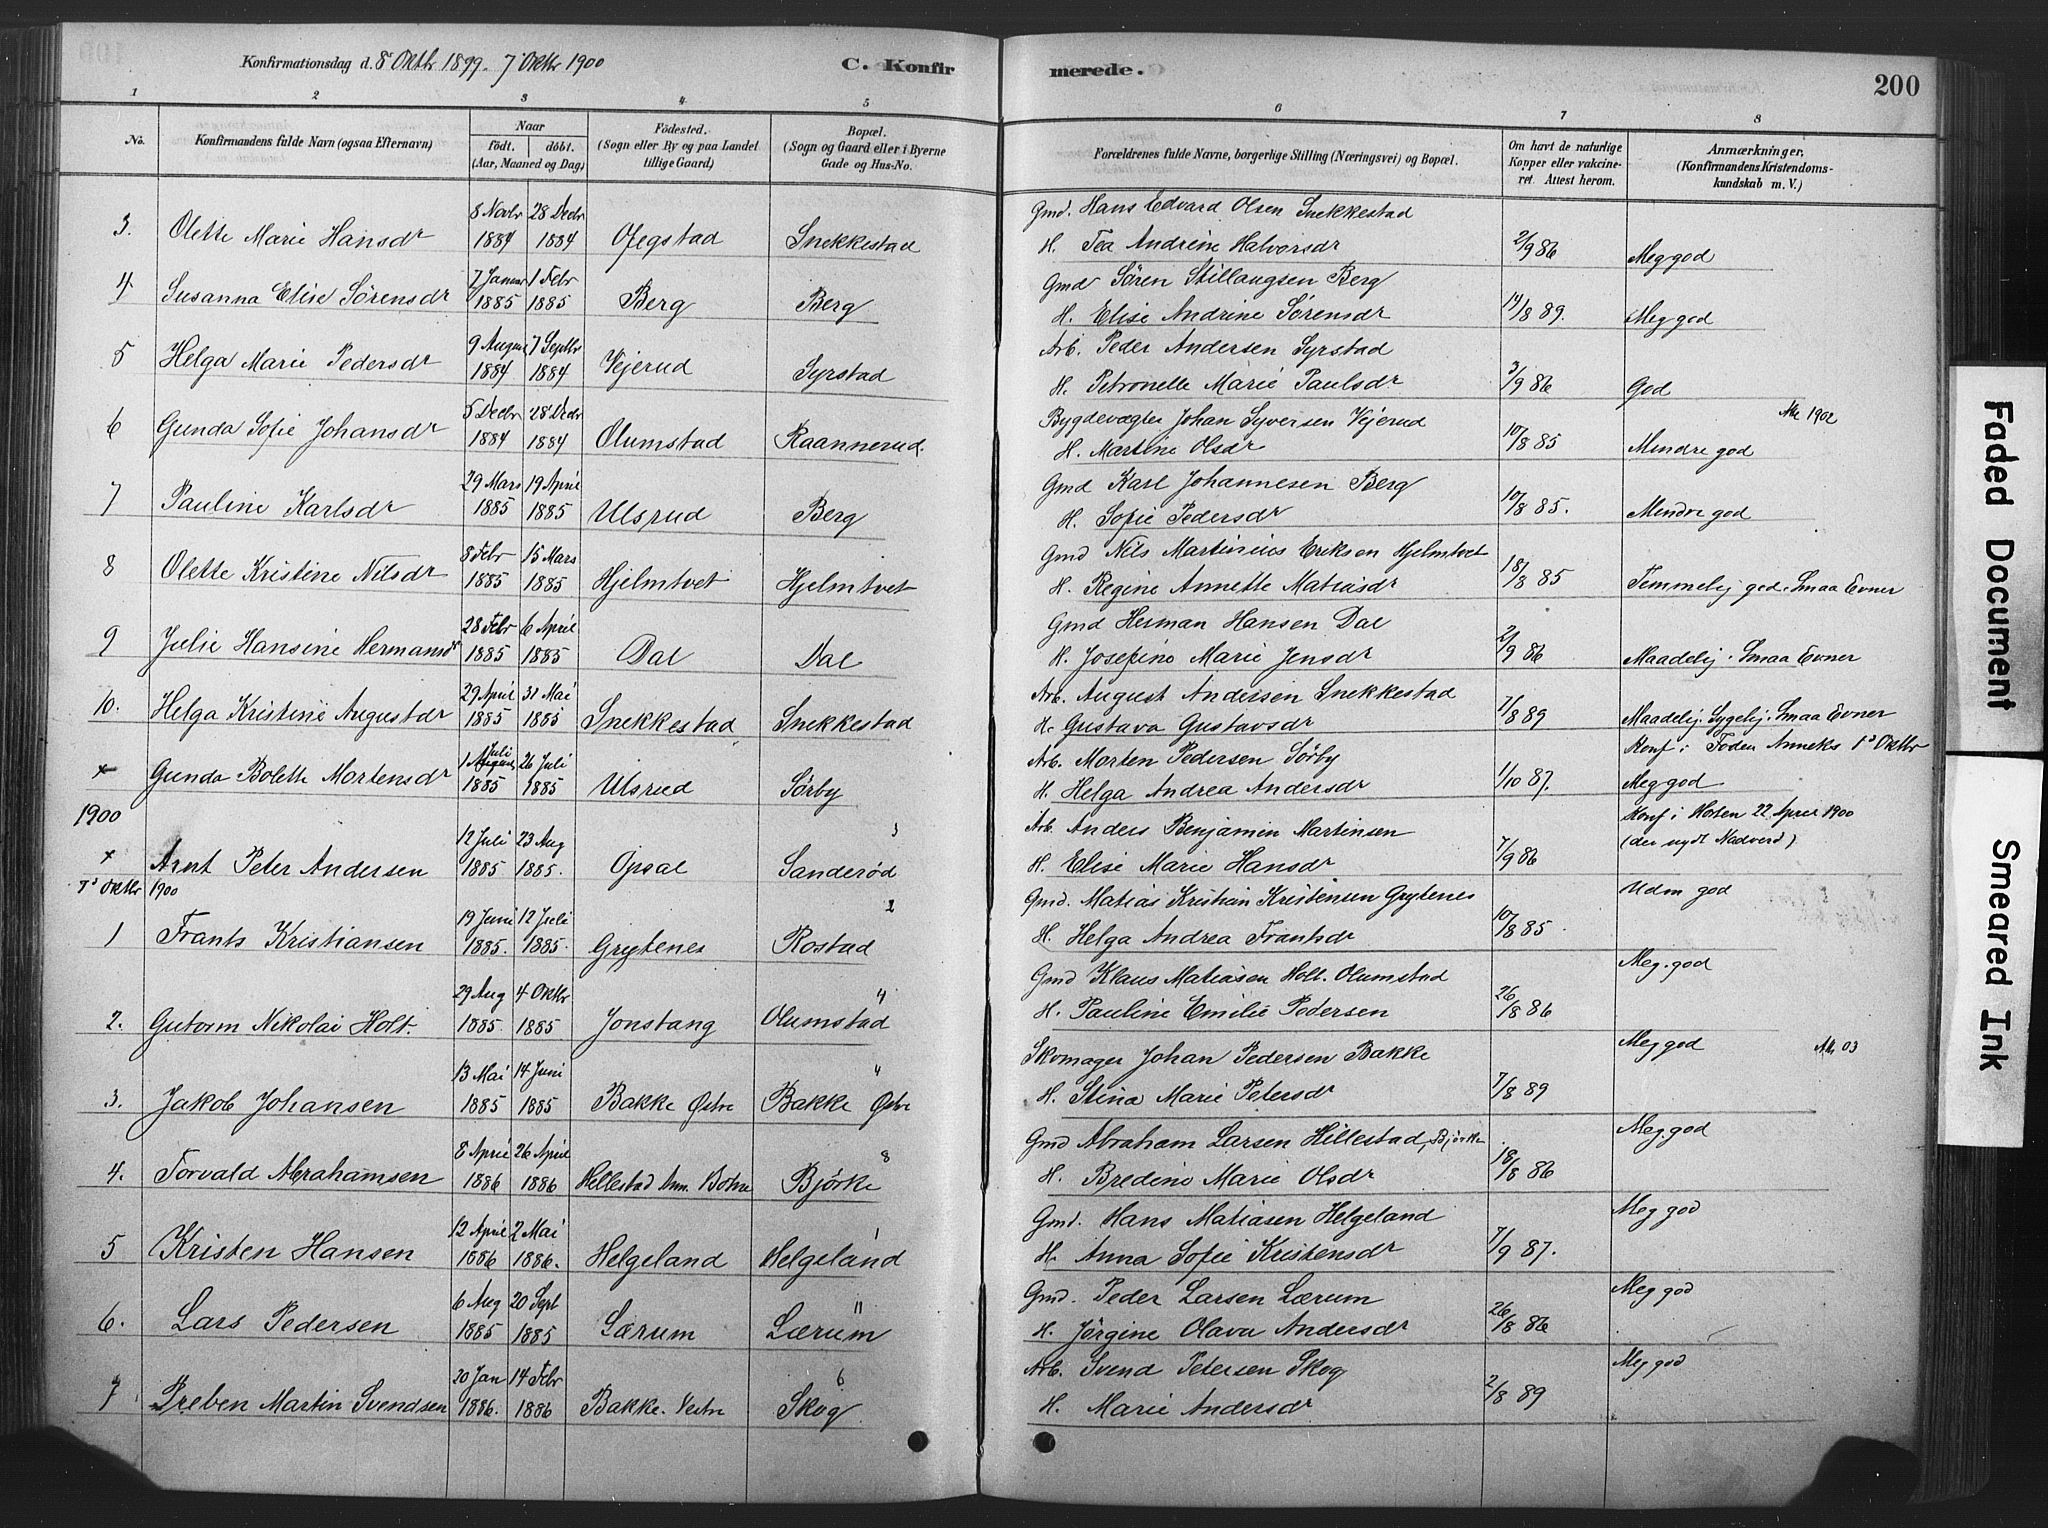 Konfirmationsdag d. 8 Oktbr 1899. 7 Oktbr 1900
C. Konfirmerede.
200
1 2 3 4 5 6 7 8
No.
Konfirmandens fulde Navn (ogsaa Efternavn)
Naar
födt. döbt.
(Aar, Maaned og Dag)
Födested.
(Sogn eller By og paa Landet
tillige Gaard)
Bopæl.
(Sogn og Gaard eller i Byerne
Gade og Hus-No.
Forældrenes fulde Navne, borgerlige Stilling (Næringsvei) og Bopæl.
Om havt de naturlige
Kopper eller vakcine-
ret. Attest herom.
Anmærkninger.
(Konfirmandens Kristendoms-
kundskab m. V.)
3. Olette Marie Hansdr 8 Novbr 1884 28 Decbr 1884 Ofegstad Snekkestad Gmd. Hans Edvard Olsen Snekkestad
H. Tea Andrine Halvorsdr 2/9 86 Meg god
4 Susanna Elise Sörensdr 7 Januar 1885 1 Febr 1885 Berg Berg Gmd Sören Stillaugsen Berg
H. Elise Andrine Sörensdr 14/8 89. Meg god
5 Helga Marie Pedersdr 9 August 1884 7 Septbr 1884 Vejerud Syrstad Arb. Peder Andersen Syrstad
H. Petronelle Marie Paulsdr 3/9 86 God
6 Gunda Sofie Johansdr 5 Decbr 1884 28 Decbr 1884 Olumstad Raannerud. Bygdevægter Johan Syversen Vejerud
H. Martine Olsdr 10/8 85 Mindre god Att 1902
7 Pauline Karlsdr 29 Mars 1885 19 April 1885 Ulsrud Berg Gmd Karl Johannesen Berg
H. Sofie Pedersdr 10/8 85. Mindre god
8 Olette Kristine Nilsdr 8 Febr 1885 15 Mars 1885 Hjelmtvet Hjelmtvet Gmd Nils Martinius Eriksen Hjelmtvet
H. Regine Annette Matiasdr 18/8 85 Temmelig god. Smaa Evner
9 Julie Hansine Hermansdr 28 Febr 1885 6 April 1885 Dal Dal Gmd Herman Hansen Dal
H. Josefine Marie Jensdr 2/9 86 Maadelig. Smaa Evner
10. Helga Kristine Augustdr 29 April 1885 31 Mai 1885 Snekkestad Snekkestad Arb. August Andersen Snekkestad
H. Gustava Gustavsdr 7/8 89 Maadelig. Sygelig. Smaa Evner
x Gunda Bolette Mortensdr 1 Juli 1885 26 Juli 1885 Ulsrud Sörby Arb. Morten Pedersen Sörby Konf i Foden Anneks 1s Oktbr
H. Helga Andrea Andersdr 1/10 87. Meg god
1900
x Arnt Peter Andersen 12 Juli 1885 23 Aug 1885. Opsal Sanderød Arb. Anders Benjamin Martinsen Konf i Horten 22 April 1900
H. Elise Marie Hansdr 7/9 86 (der nydt Nadverd)
7s Oktbr 1900
1 Frants Kristiansen 19 Juni 1885. 12 Juli 1885. Grytenes 2 Rostad Gmd. Matias Kristian Kristensen Grytenes Udm god
H. Helga Andrea Frantsdr 10/8 85
2. Gutorm Nikolai Holt. 29 Aug 1885. 4 Oktbr 1885 Jonstang 4 Olumstad Gmd Klaus Matiasen Holt. Olumstad Meg. god
H. Pauline Emilie Pedersen 26/8 86
3. Jakob Johansen 13 Mai 1885 14 Juni 1885 Bakke Østre 4 Bakke Østre Skomager Johan Pedersen Bakke Meg god Att. 03
H. Stina Marie Petersdr 7/8 89
4. Torvald Abrahamsen 8 April 1886 26 April 1886 Hillestad Ann. Botne 8 Bjørke Gmd Abraham Larsen Hillestad, Bjørke Meg. god
H. Bredine Marie Olsdr 18/8 86
5 Kristen Hansen 12 April 1886 2 Mai 1886. Helgeland 1 Helgeland Gmd. Hans Matiasen Helgeland Meg god
H. Anna Sofie Kristensdr 7/9 87.
6. Lars Pedersen 6 Aug 1885 20 Sept 1885 Lærum 11 Lærum Gmd. Peder Larsen Lærum Meg god
H. Jörgine Olava Andersdr 26/8 86
7 Preben Martin Svendsen 20 Jan 1886. 14 Febr 1886 Bakke. Vestre 6 Skog Arb. Svend Petersen Skog Meg god
H. Marie Andersdr 2/8 89
Faded Document
Smeared Ink